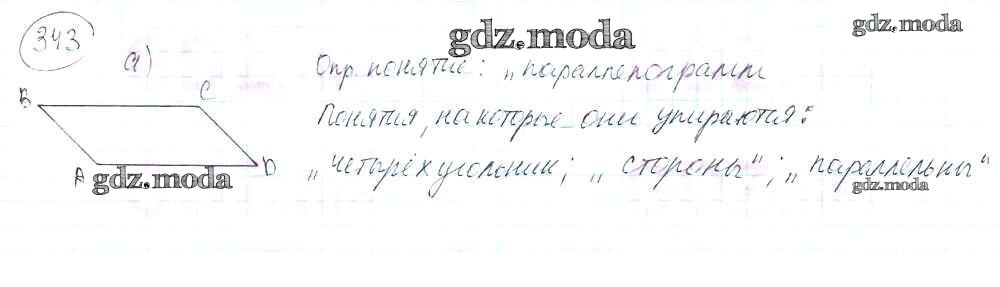 343
gdz.moda
gdz.moda
а)
Опр. понятие: „параллелограмм
B
C
Понятия, на которые они упираются:
A
D
gdz.moda
„четырёхугольник; „стороны“; „параллельны“
gdz.moda